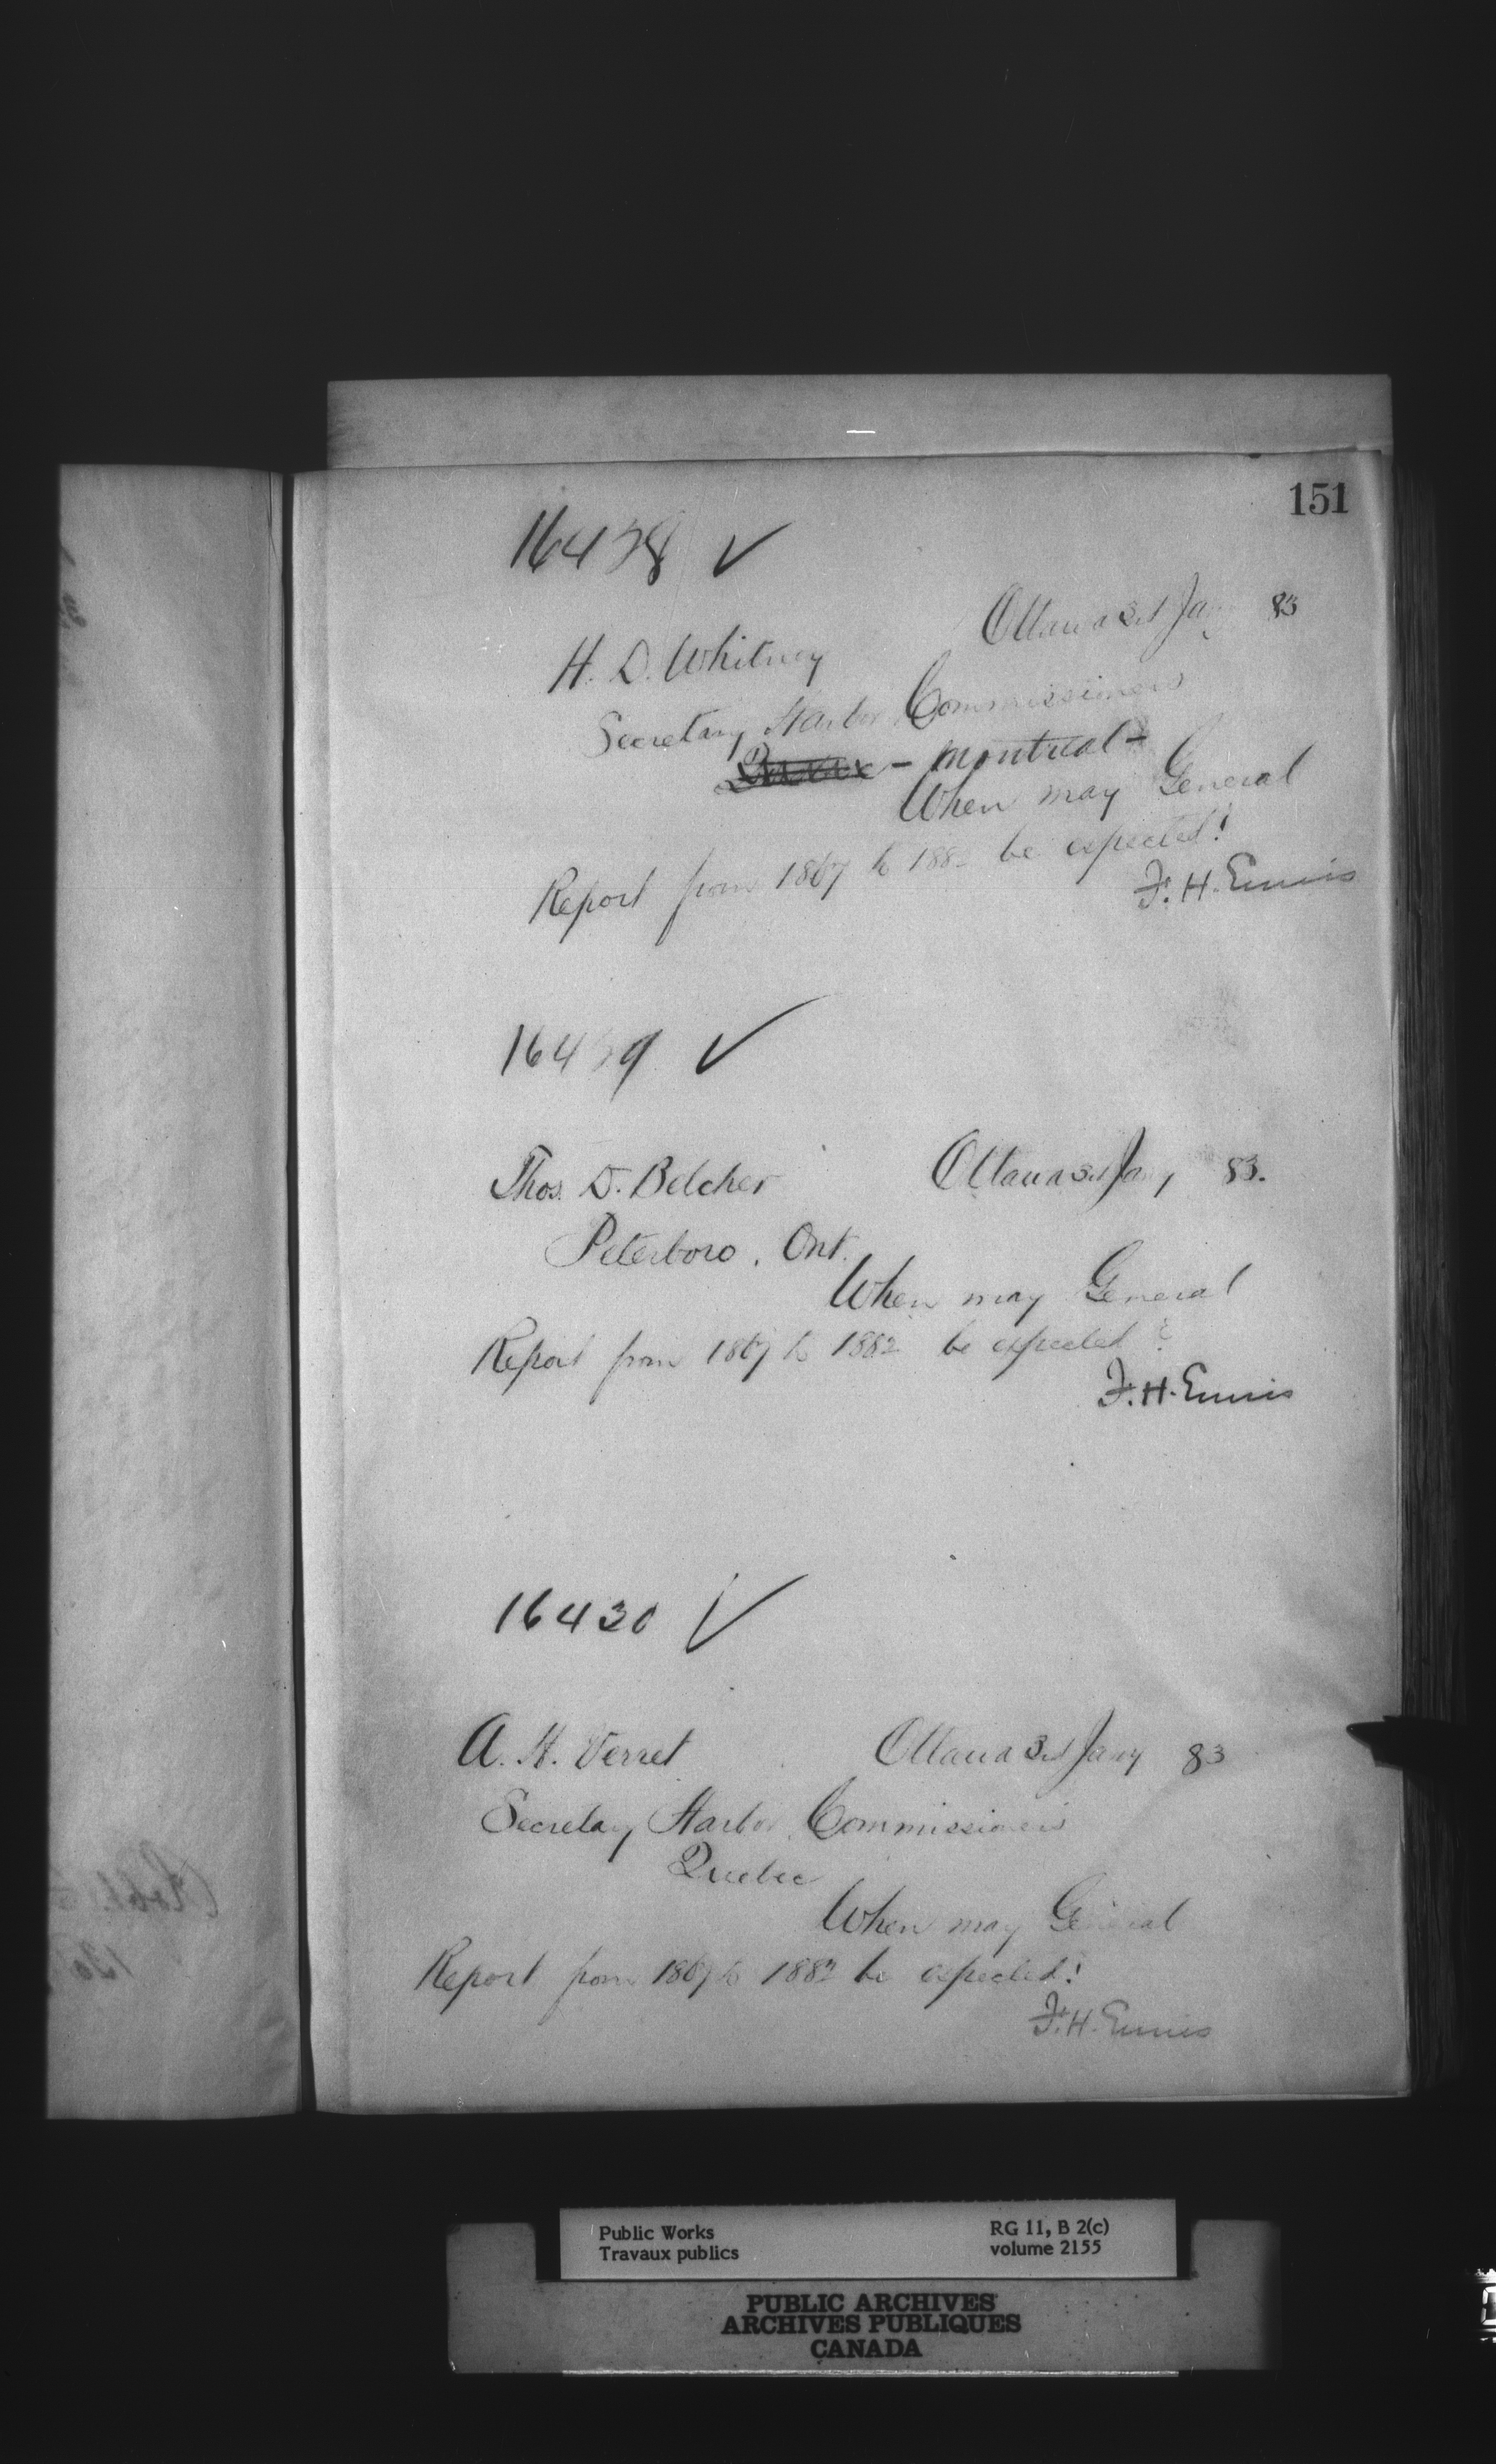 151
16428 ✓
Ottawa 3rd Jany 83
H. D. Whitney
Secretary Harbor Commissioners
- Montreal -
When may General
Report from 1867 to 1882 be expected?
F. H. Ennis
16429 ✓
Thos. D. Belcher Ottawa 3rd Jany 83.
Peterboro, Ont.
When may General
Report from 1867 to 1882 be expected?
F. H. Ennis
16430 ✓
A. H. Verret Ottawa 3rd Jany 83
Secretary Harbor Commissioners
Quebec
When may General
Report from 1867 to 1882 be expected?
F. H. Ennis
Public Works
Travaux publics
RG 11, B 2(c)
volume 2155
PUBLIC ARCHIVES
ARCHIVES PUBLIQUES
CANADA